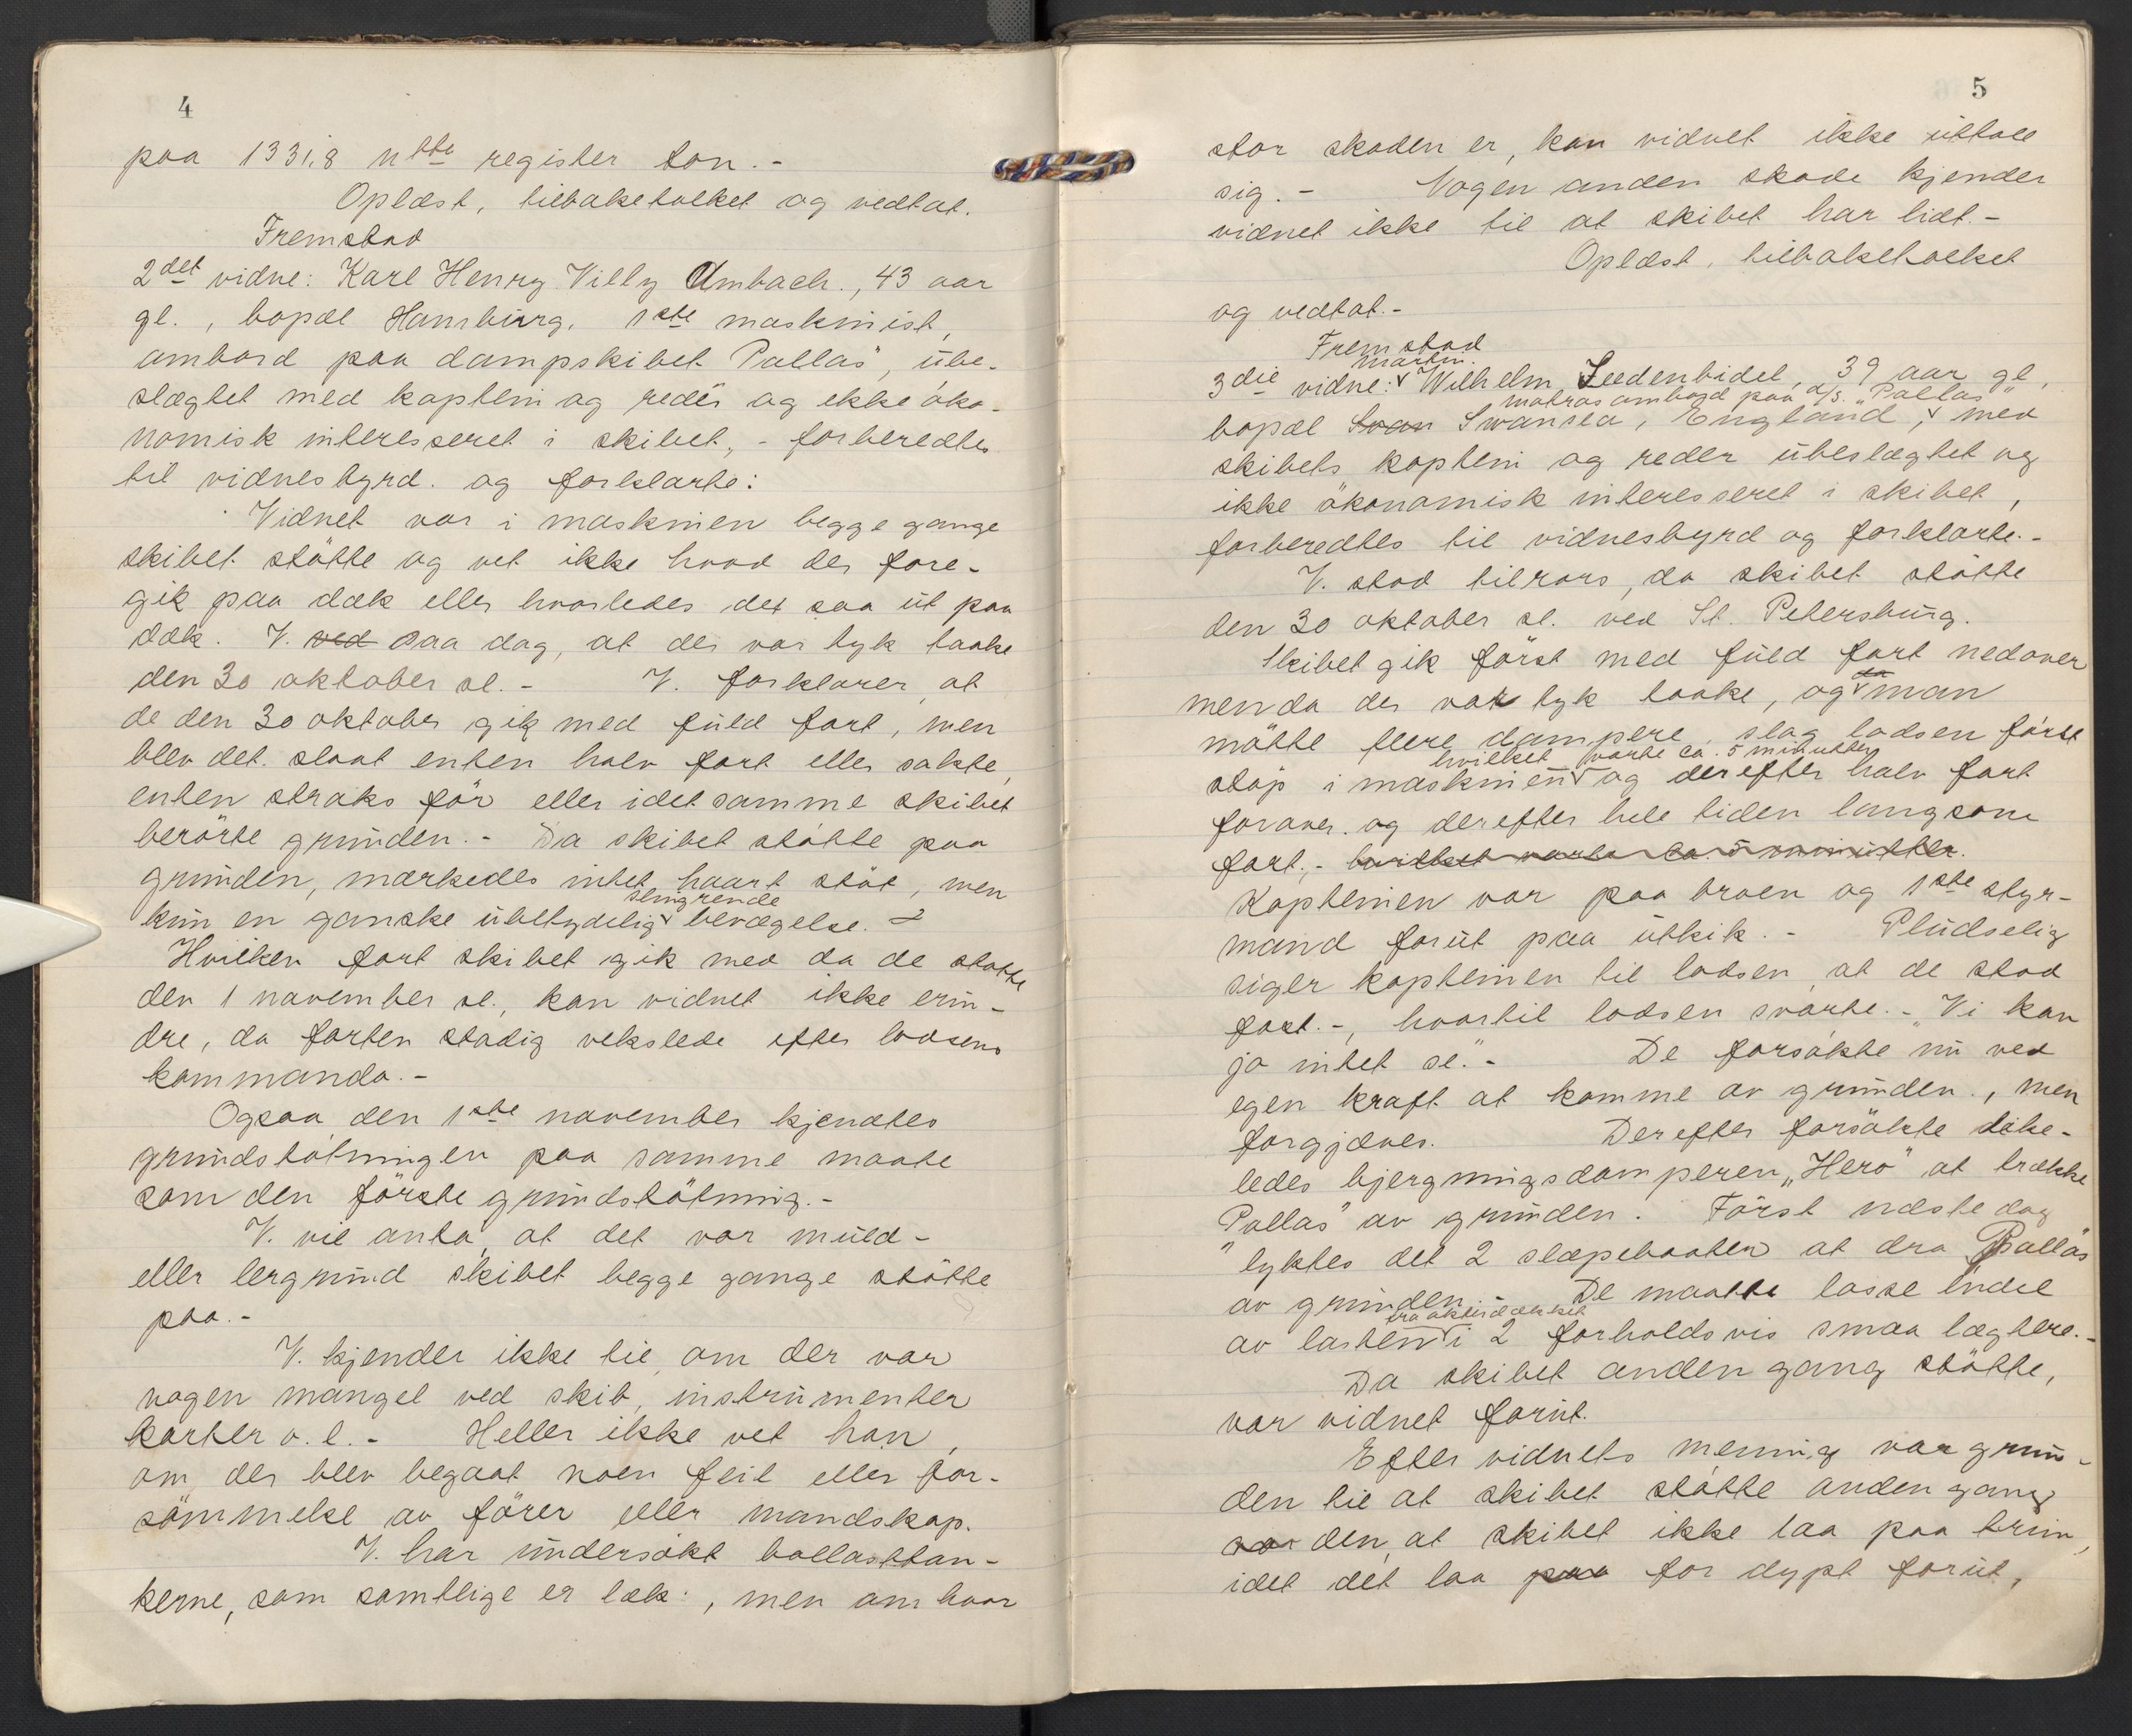 4
paa 1331,8 ntto register ton.-
Oplæst, tilbaketolket og vedtat.
Fremstod
2det vidne: Karl Henry Villy Ambach., 43 aar
gl., bopæl Hamburg, 1ste maskinist,
ombord paa dampskibet "Pallas", ube-
slægtet med kaptein og reder og ikke öko-
nomisk interesseret i skibet, - forberedtes
til vidnesbyrd. og forklarte:
Vidnet var i maskinen begge gange
skibet stötte og vet ikke hvad der fore-
gik paa dæk eller hvorledes det saa ut paa
dæk. V. ved saa dog, at der var tyk taake
den 30 oktober sl.- V. forklarer, at
de den 30 oktober gik med fuld fart, men
blev det slaat enten halv fart eller sakte,
enten straks för eller idet samme skibet
berörte grunden.- Da skibet stötte paa
grunden, merkedes intet haart stöt, men
slingrende
kun en ganske ubetydelig bevægelse. -
Hvilken fart skibet gik med da de stötte
den 1 november sl., kan vidnet ikke erin-
dre, da farten stadig vekslede efter lodsens
kommando.-
Ogsaa den 1ste november kjendtes
grundstötningen paa samme maate
som den förste grundstötning.-
V. vil anta, at det var muld-
eller lergrund skibet begge gange stötte
paa.-
V. kjender ikke til om der var
nogen mangel ved skib, instrumenter
karter o.l.- Heller ikke vet han,
om der blev begaat noen feil eller for-
sömmelse av förer eller mandskap.
V. har undersökt ballasttan-
kerne, som samtlige er læk, men om hvor
5
stor skaden er, kan vidnet ikke uttale
sig.- Nogen anden skade kjender
vidnet ikke til at skibet har lidt.-
Oplæst, tilbaketolket
og vedtat.-
Fremstod
Martin
3die vidne: Wilhelm Seedenbidel, 39 aar gl,
matros ombord paa d/s. "Pallas"
bopæl Svan Swansea, England, med
skibets kaptein og reder ubeslægtet og
ikke ökonomisk interesseret i skibet,
forberedtes til vidnesbyrd og forklarte.-
V. stod tilrors, da skibet stötte
den 30 oktober sl. ved St. Petersburg.
Skibet gik först med fuld fart nedover
da
men da der var tyk taake, og man
mötte flere dampere, slog lodsen först
hvilket varte ca. 5 minutter
stop i maskinen og derefter halv fart
forover. og derefter hele tiden langsom
fart,- hvilket varte ca. 5 minutter.
Kapteinen var paa broen og 1ste styr-
mand forut paa utkik.- Pludselig
siger kapteinen til lodsen, at de stod
fast.-, hvortil lodsen svarte.- "Vi kan
jo intet se."- De forsökte nu ved
egen kraft at komme av grunden., men
forgjæves. Derefter forsökte like-
ledes bjergningsdamperen "Hero" at trække
"Pallas" av grunden. Först næste dag
lyktes det 2 slæpebaater at dra "Pallas"
av grunden.- De maatte losse endel
fra akterdækket
av lasten i 2 forholdsvis smaa lægtere.-
Da skibet anden gang stötte,
var vidnet forut.
Efter vidnets mening var grun-
den til at skibet stötte anden gang
var den, at skibet ikke laa paa trim,
idet det laa paa for dypt forut,